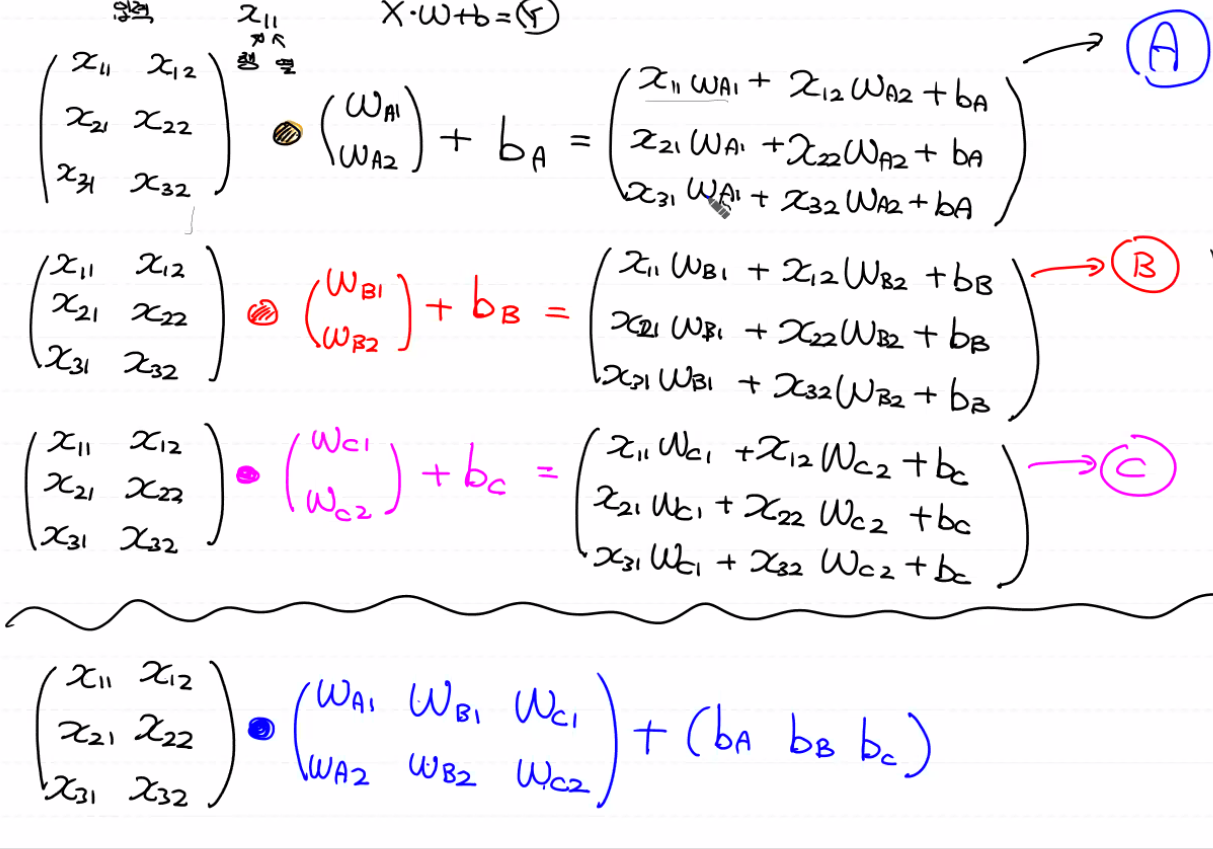 입력 x₁₁ X·W+b=Y
행 열
x₁₁ x₁₂
x₂₁ x₂₂
x₃₁ x₃₂
•
W_A1
W_A2
+ b_A =
x₁₁ W_A1 + x₁₂ W_A2 + b_A
x₂₁ W_A1 + x₂₂ W_A2 + b_A
x₃₁ W_A1 + x₃₂ W_A2 + b_A
→ A
x₁₁ x₁₂
x₂₁ x₂₂
x₃₁ x₃₂
•
W_B1
W_B2
+ b_B =
x₁₁ W_B1 + x₁₂ W_B2 + b_B
x₂₁ W_B1 + x₂₂ W_B2 + b_B
x₃₁ W_B1 + x₃₂ W_B2 + b_B
→ B
x₁₁ x₁₂
x₂₁ x₂₂
x₃₁ x₃₂
•
W_C1
W_C2
+ b_C =
x₁₁ W_C1 + x₁₂ W_C2 + b_C
x₂₁ W_C1 + x₂₂ W_C2 + b_C
x₃₁ W_C1 + x₃₂ W_C2 + b_C
→ C
x₁₁ x₁₂
x₂₁ x₂₂
x₃₁ x₃₂
•
W_A1 W_B1 W_C1
W_A2 W_B2 W_C2
+ (b_A b_B b_C)